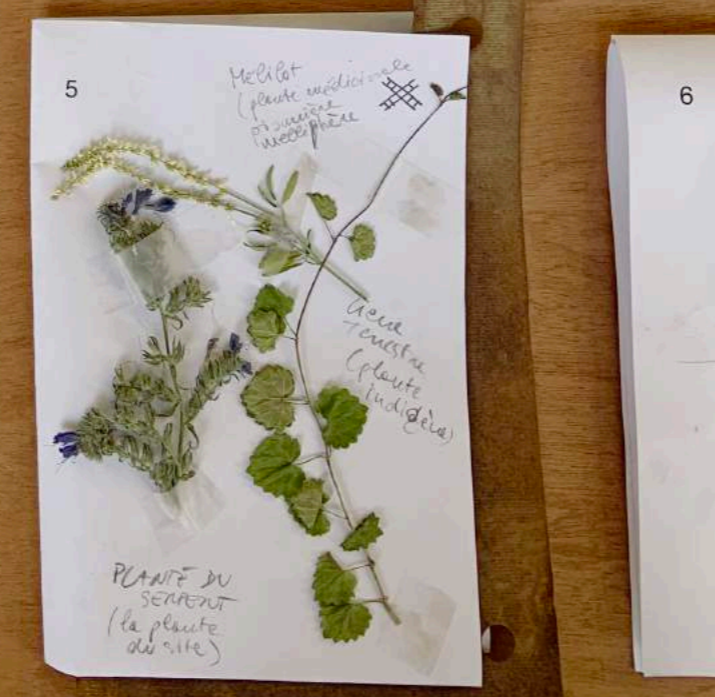 5
Melilot
(plante médicinale
pionnière
mellifère
Lierre
Terrestre
(plante
indigène)
PLANTE DU
SERPENT
(la plante
du site)
6